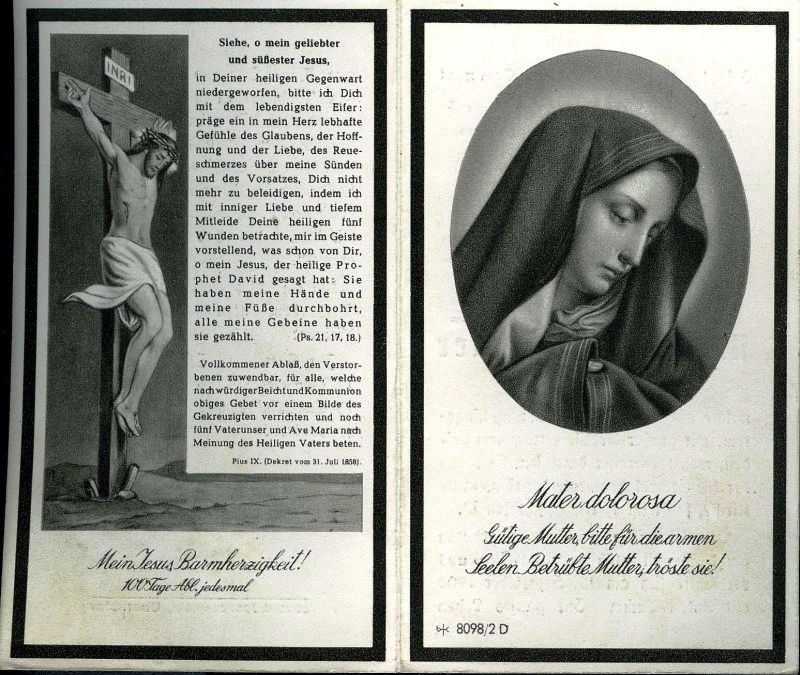 INRI
Siehe, o mein geliebter
und süßester Jesus,
in Deiner heiligen Gegenwart
niedergeworfen, bitte ich Dich
mit dem lebendigsten Eifer:
präge ein in mein Herz lebhafte
Gefühle des Glaubens, der Hoff-
nung und der Liebe, des Reue-
schmerzes über meine Sünden
und des Vorsatzes, Dich nicht
mehr zu beleidigen, indem ich
mit inniger Liebe und tiefem
Mitleide Deine heiligen fünf
Wunden betrachte, mir im Geiste
vorstellend, was schon von Dir,
o mein Jesus, der heilige Pro-
phet David gesagt hat: Sie
haben meine Hände und
meine Füße durchbohrt,
alle meine Gebeine haben
sie gezählt. (Ps. 21, 17, 18.)
Vollkommener Ablaß, den Verstor-
benen zuwendbar, für alle, welche
nach würdiger Beicht und Kommunion
obiges Gebet vor einem Bilde des
Gekreuzigten verrichten und noch
fünf Vaterunser und Ave Maria nach
Meinung des Heiligen Vaters beten.
Pius IX. (Dekret vom 31. Juli 1858).
Mein Jesus, Barmherzigkeit!
100 Tage Abl. jedesmal
Mater dolorosa
Gütige Mutter, bitte für die armen
Seelen. Betrübte Mutter, tröste sie!
8098/2 D